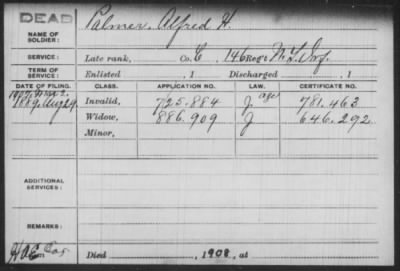 DEAD
NAME OF SOLDIER: Palmer, Alfred H.
SERVICE: Late rank, Co. C, 146 Reg't N.Y. Inf.
TERM OF SERVICE: Enlisted , 1 Discharged , 1
DATE OF FILING. CLASS. APPLICATION NO. LAW. CERTIFICATE NO.
1889, Aug 29. Invalid, 725.884 J. age 781.463
Widow, 886.909 J 646.292
Minor,
ADDITIONAL SERVICES:
REMARKS:
Died , 1908, at